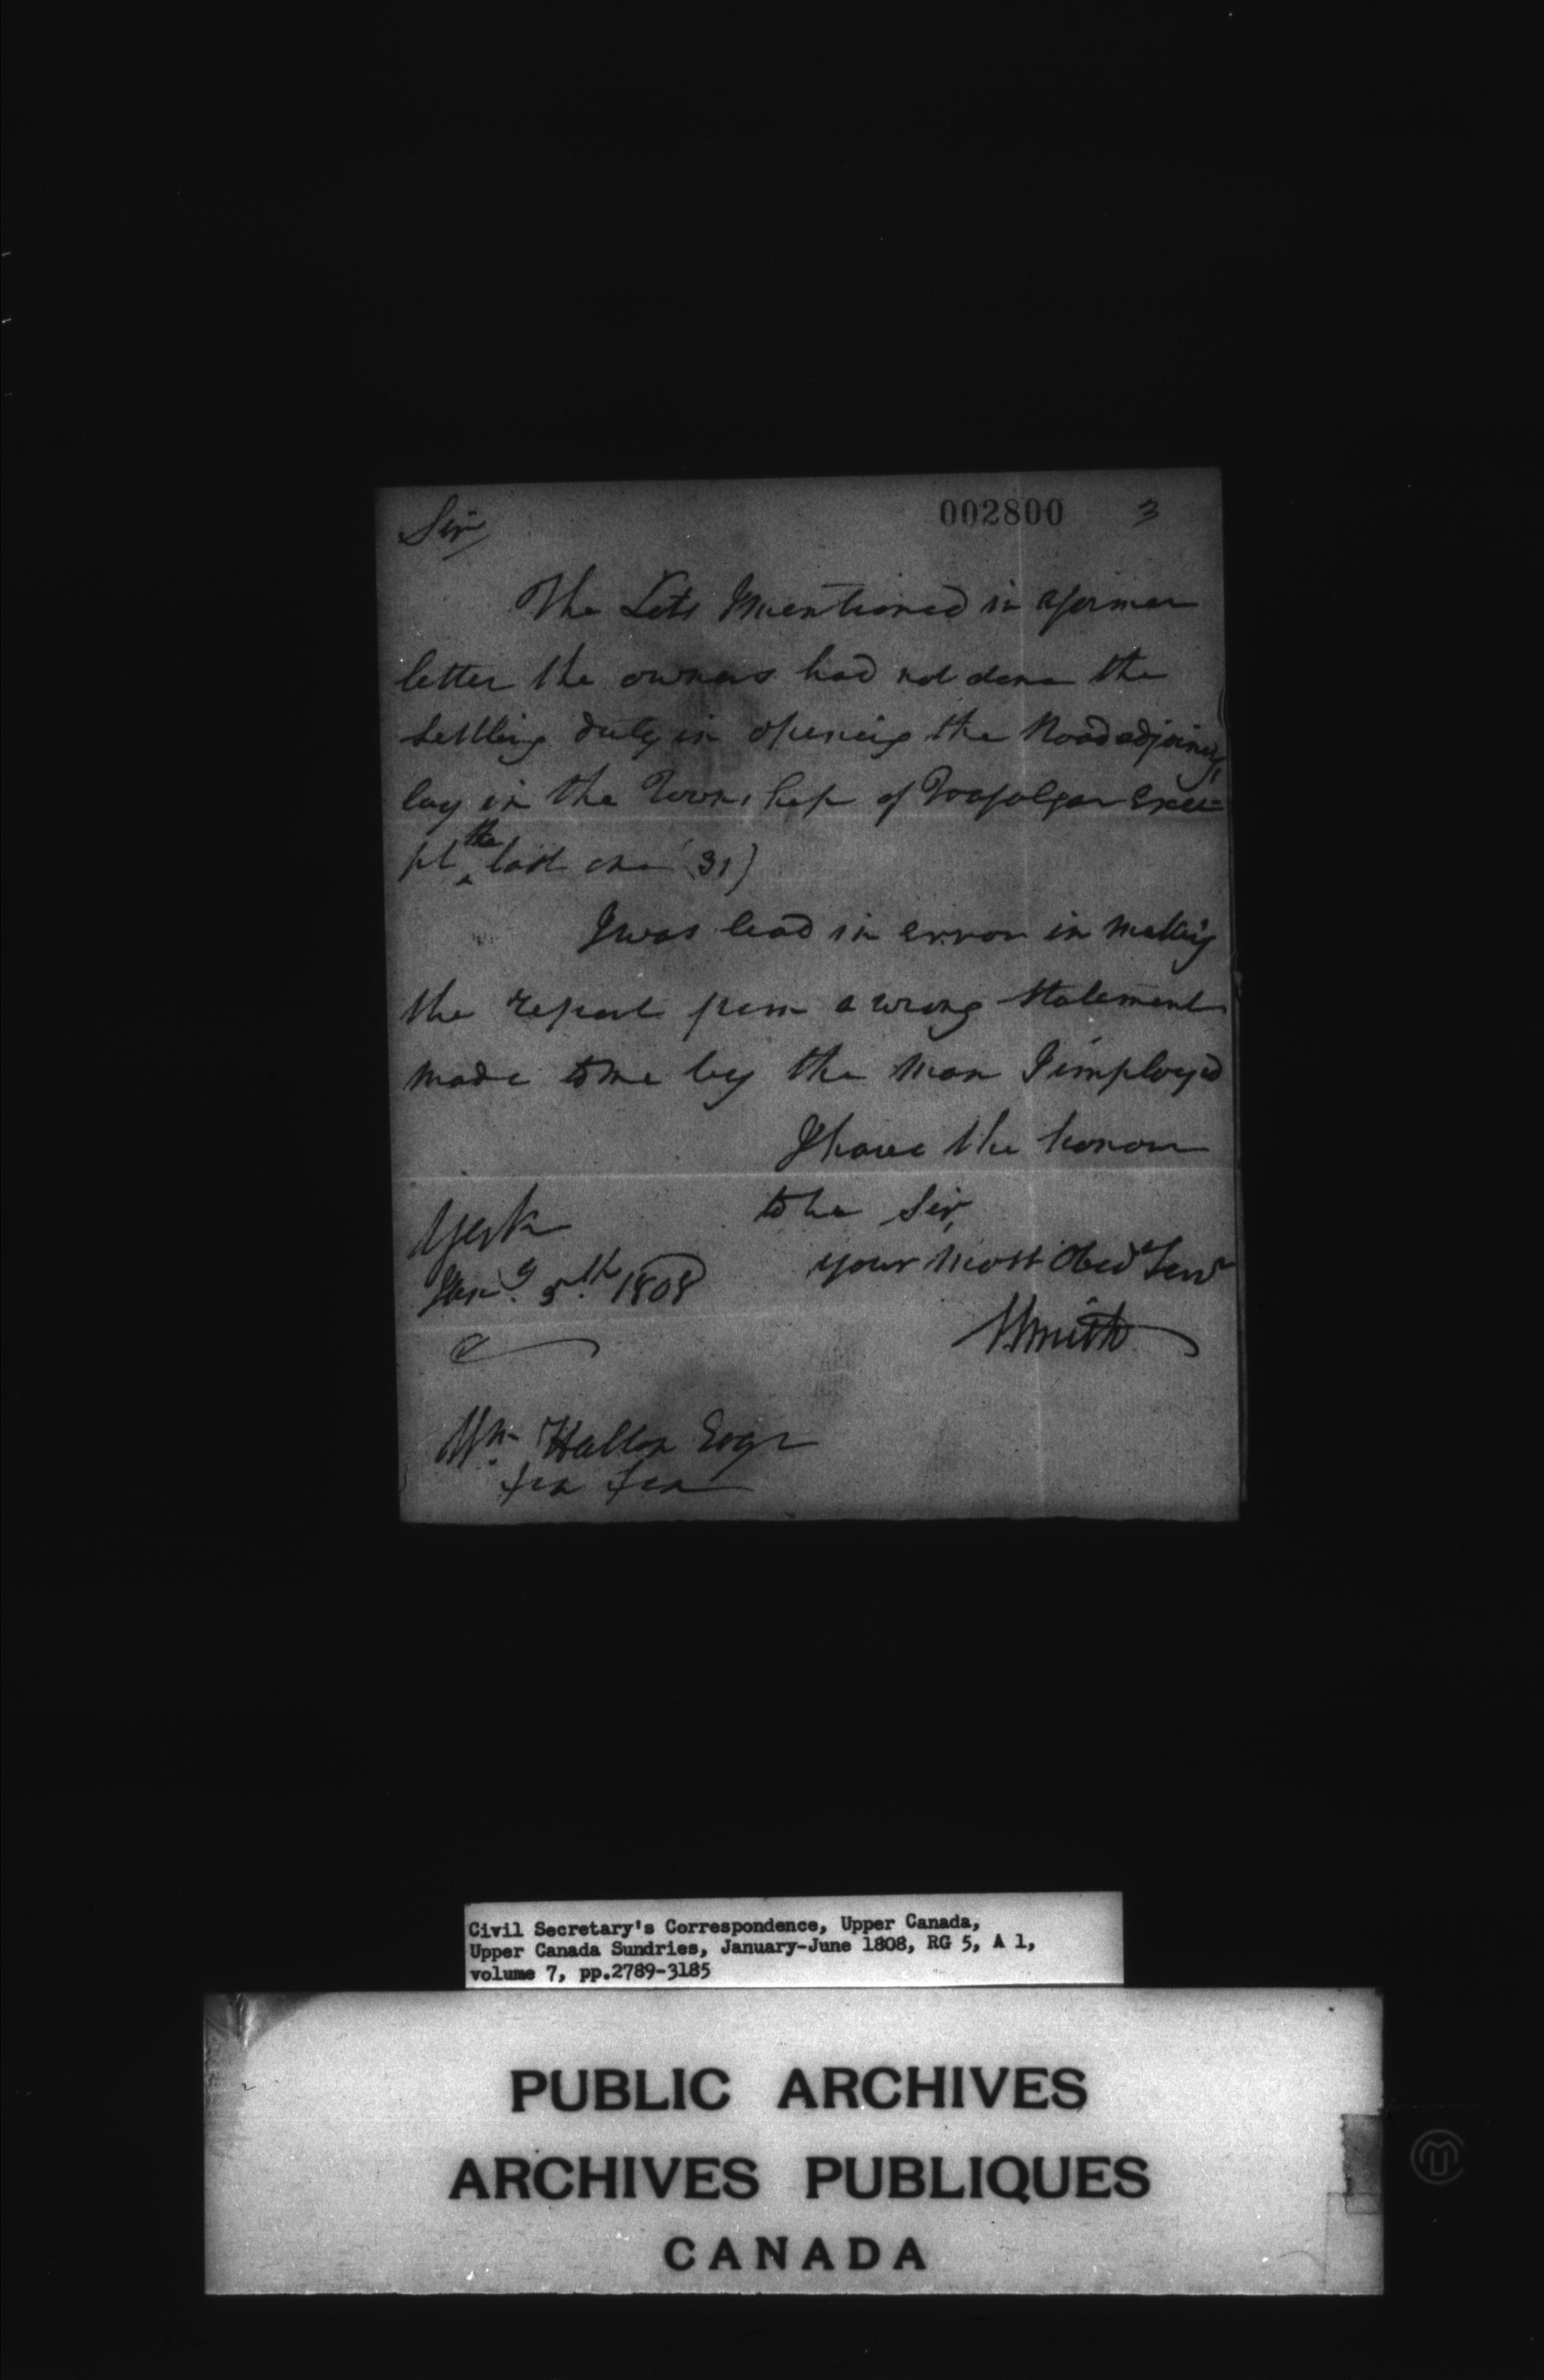 002800 3
Sir,
The Lots Mentioned in a former
letter the owners had not done the
settling duty in opening the Road adjoining,
lay in the Township of Trafalgar Exce=
pt the last one (31)
I was lead in error in making
the report from a wrong statement
made to me by the man I imployed
I have the honour
to be Sir,
your most Obed Servt
York
Jany. 5th. 1808
Smith
Wm. Halton Esqr
Civil Secretary's Correspondence, Upper Canada,
Upper Canada Sundries, January-June 1808, RG 5, A 1,
volume 7, pp.2789-3185
PUBLIC ARCHIVES
ARCHIVES PUBLIQUES
CANADA